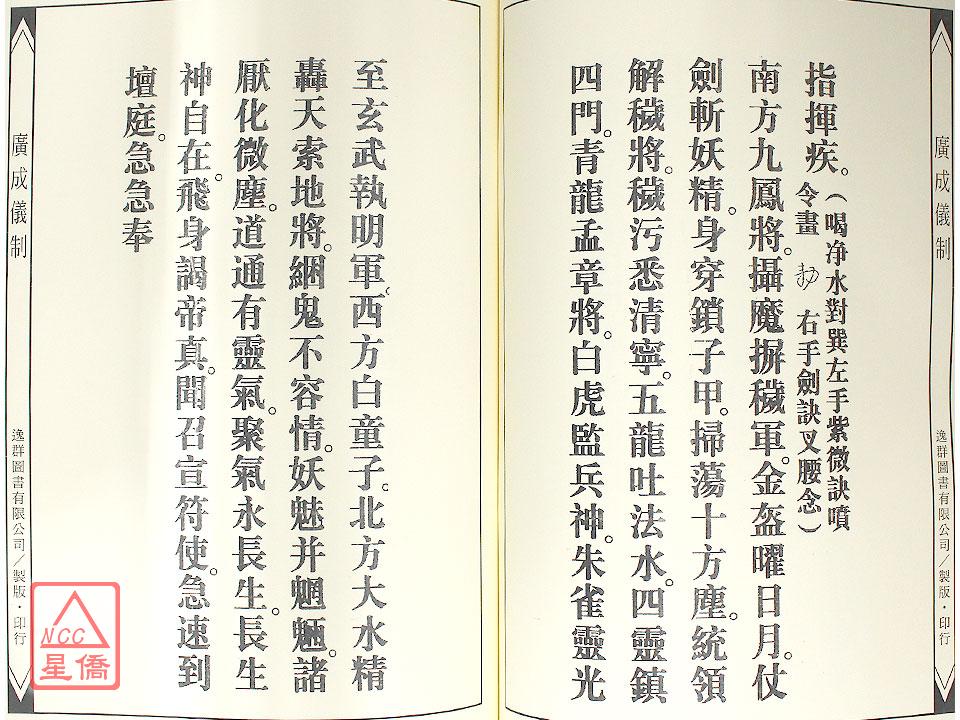 廣成儀制
逸群圖書有限公司／製版・印行
指揮疾。(喝净水對巽左手紫微訣噴
令畫 右手劍訣叉腰念)
南方九鳳將。攝魔摒穢軍。金盔曜日月。仗
劍斬妖精。身穿鎖子甲。掃蕩十方塵。統領
解穢將。穢污悉清寧。五龍吐法水。四靈鎮
四門。青龍孟章將。白虎監兵神。朱雀靈光
至玄武執明軍。西方白童子。北方大水精
轟天索地將。綑鬼不容情。妖魅并魍魎。諸
厭化微塵。道通有靈氣。聚氣永長生。長生
神自在。飛身謁帝真。聞召宣符使。急速到
壇庭。急急奉
廣成儀制
逸群圖書有限公司／製版・印行
NCC
星僑